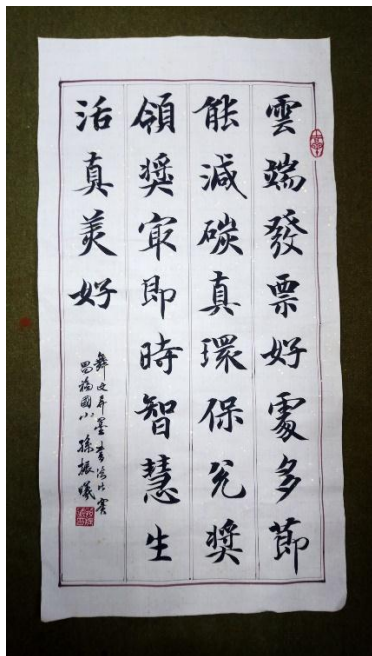 雲端發票好處多節
能減碳真環保兌獎
領獎最即時智慧生
活真美好
舞文弄墨書法比賽
昌福國小 孫振曦